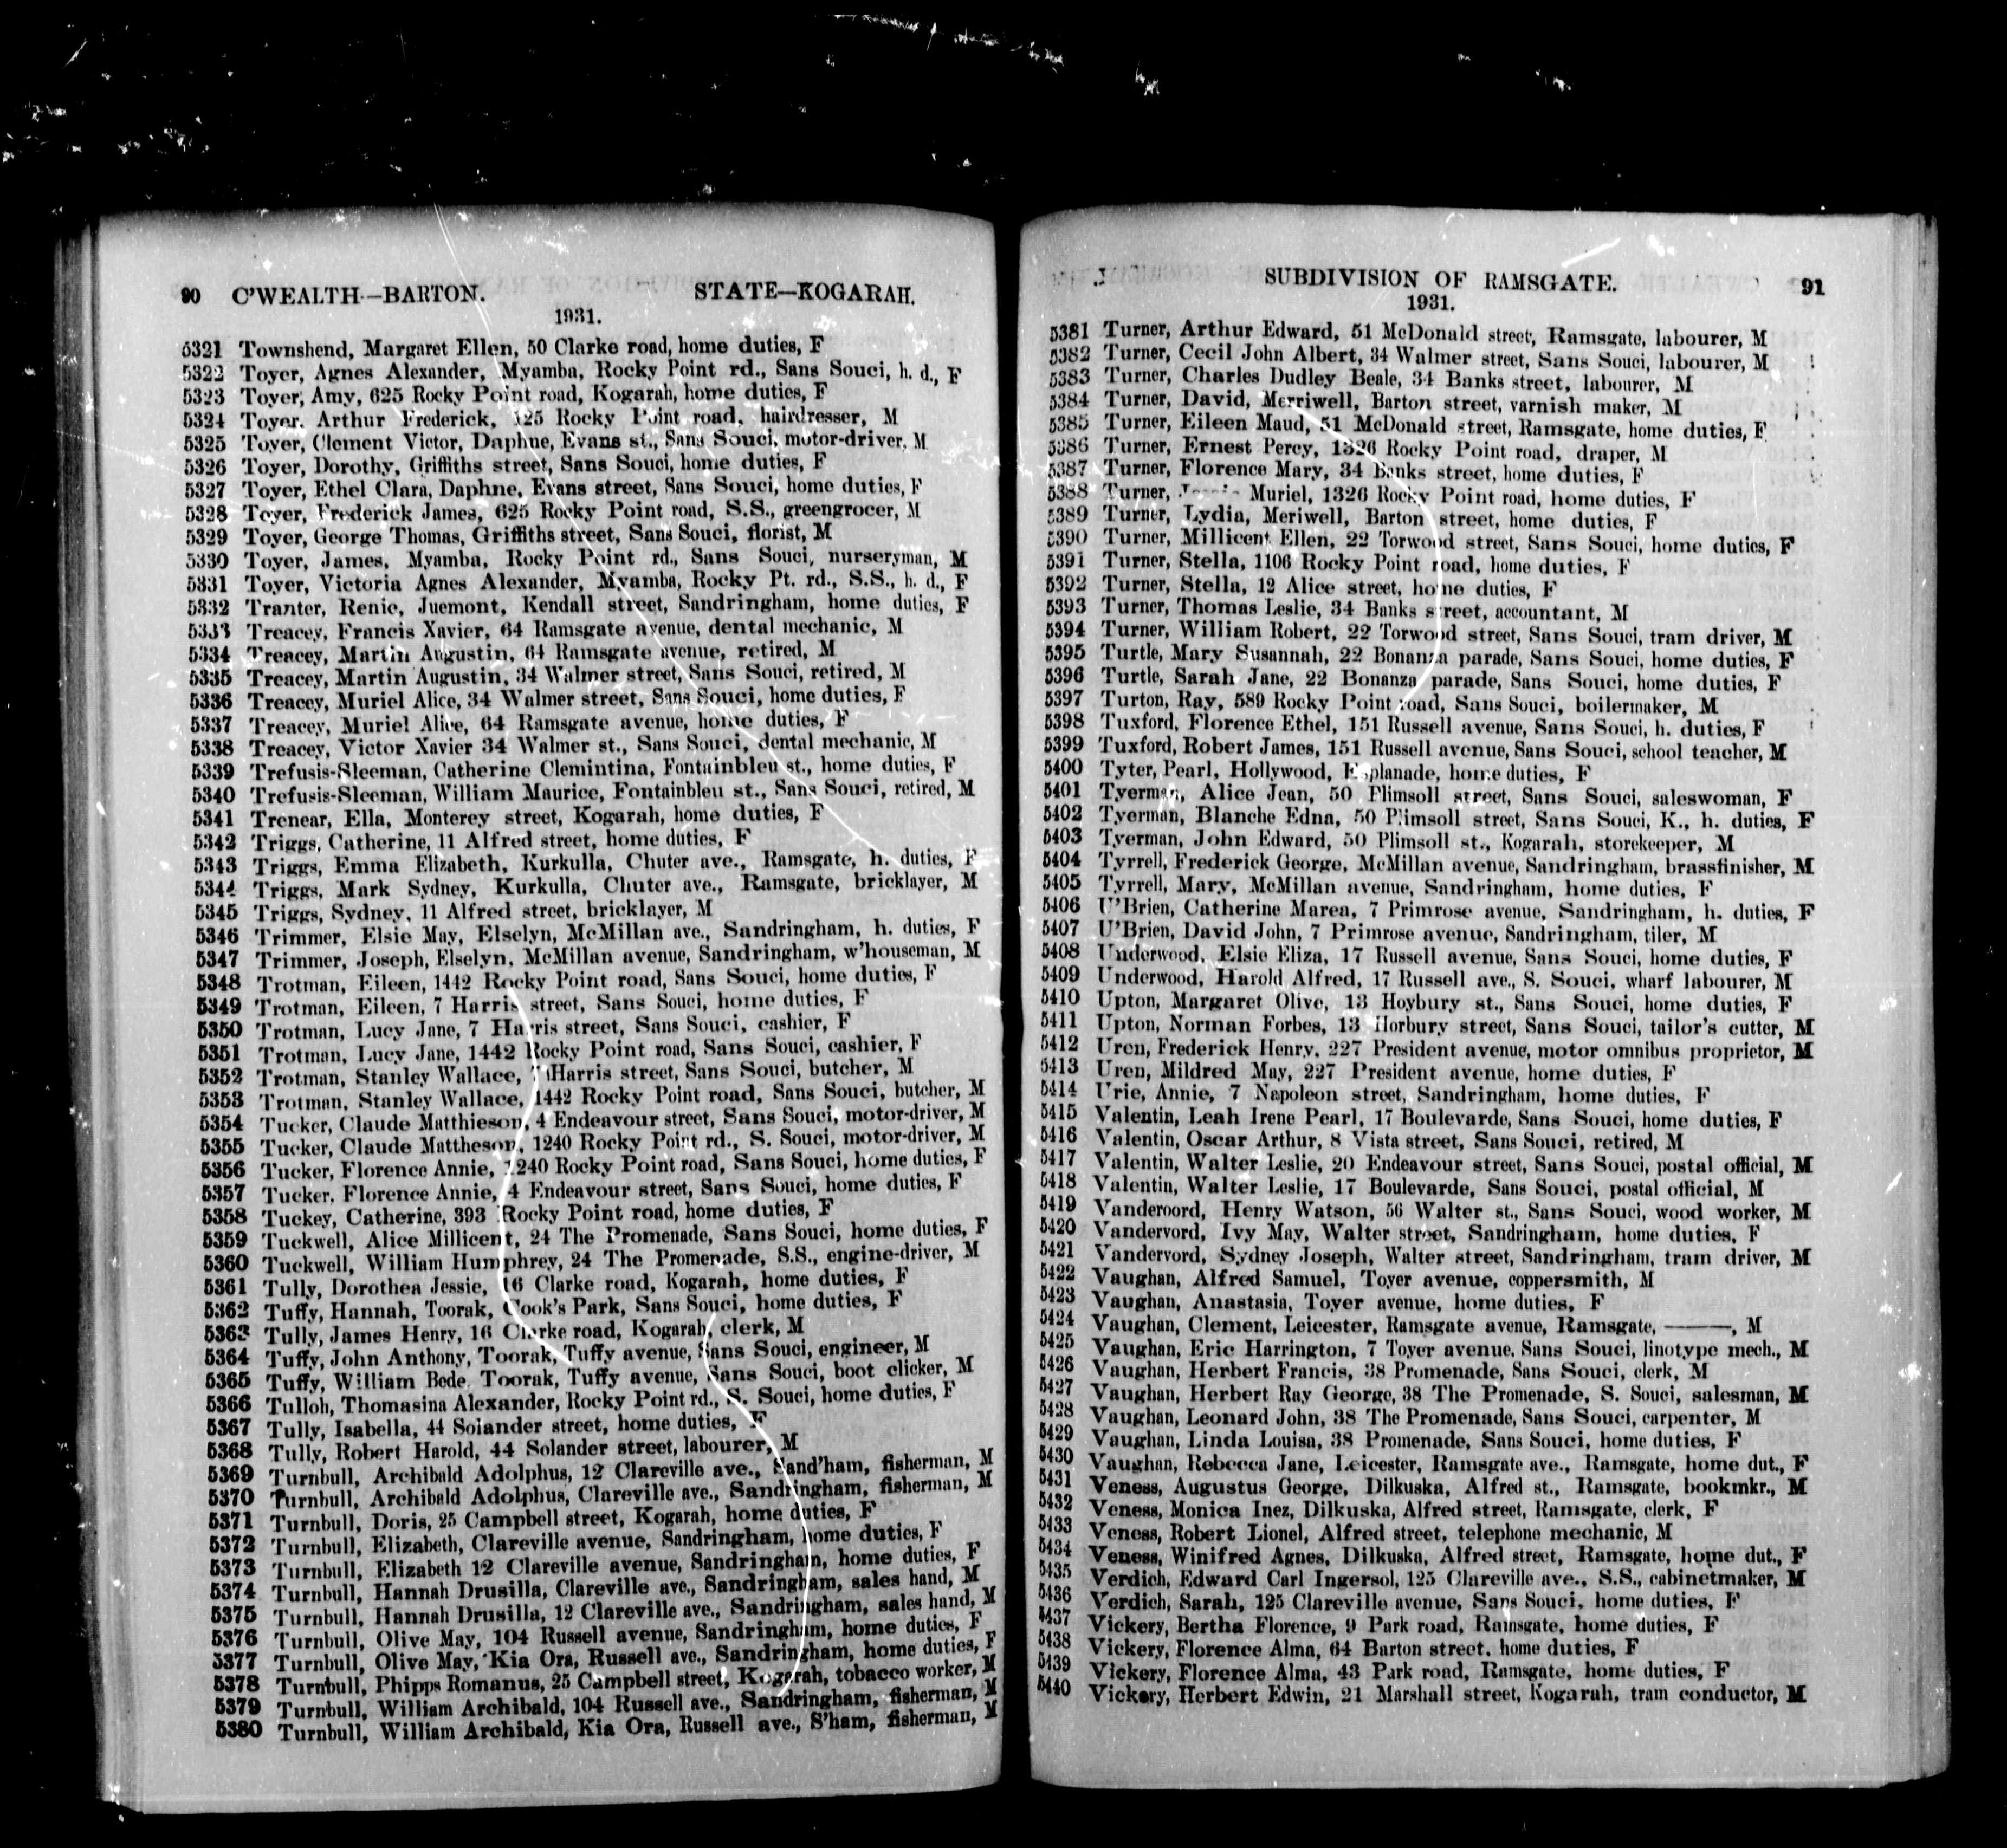 90 C'WEALTH—BARTON. STATE—KOGARAH.
1931.
5321 Townshend, Margaret Ellen, 50 Clarke road, home duties, F
5322 Toyer, Agnes Alexander, Myamba, Rocky Point rd., Sans Souci, h. d., F
5323 Toyer, Amy, 625 Rocky Point road, Kogarah, home duties, F
5324 Toyer, Arthur Frederick, 125 Rocky Point road, hairdresser, M
5325 Toyer, Clement Victor, Daphne, Evans st., Sans Souci, motor-driver, M
5326 Toyer, Dorothy, Griffiths street, Sans Souci, home duties, F
5327 Toyer, Ethel Clara, Daphne, Evans street, Sans Souci, home duties, F
5328 Toyer, Frederick James, 625 Rocky Point road, S.S., greengrocer, M
5329 Toyer, George Thomas, Griffiths street, Sans Souci, florist, M
5330 Toyer, James, Myamba, Rocky Point rd., Sans Souci, nurseryman, M
5331 Toyer, Victoria Agnes Alexander, Myamba, Rocky Pt. rd., S.S., h. d., F
5332 Tranter, Renie, Juemont, Kendall street, Sandringham, home duties, F
5333 Treacey, Francis Xavier, 64 Ramsgate avenue, dental mechanic, M
5334 Treacey, Martin Augustin, 64 Ramsgate avenue, retired, M
5335 Treacey, Martin Augustin, 34 Walmer street, Sans Souci, retired, M
5336 Treacey, Muriel Alice, 34 Walmer street, Sans Souci, home duties, F
5337 Treacey, Muriel Alice, 64 Ramsgate avenue, home duties, F
5338 Treacey, Victor Xavier 34 Walmer st., Sans Souci, dental mechanic, M
5339 Trefusis-Sleeman, Catherine Clemintina, Fontainbleu st., home duties, F
5340 Trefusis-Sleeman, William Maurice, Fontainbleu st., Sans Souci, retired, M
5341 Trenear, Ella, Monterey street, Kogarah, home duties, F
5342 Triggs, Catherine, 11 Alfred street, home duties, F
5343 Triggs, Emma Elizabeth, Kurkulla, Chuter ave., Ramsgate, h. duties, F
5344 Triggs, Mark Sydney, Kurkulla, Chuter ave., Ramsgate, bricklayer, M
5345 Triggs, Sydney, 11 Alfred street, bricklayer, M
5346 Trimmer, Elsie May, Elselyn, McMillan ave., Sandringham, h. duties, F
5347 Trimmer, Joseph, Elselyn, McMillan avenue, Sandringham, w'houseman, M
5348 Trotman, Eileen, 1442 Rocky Point road, Sans Souci, home duties, F
5349 Trotman, Eileen, 7 Harris street, Sans Souci, home duties, F
5350 Trotman, Lucy Jane, 7 Harris street, Sans Souci, cashier, F
5351 Trotman, Lucy Jane, 1442 Rocky Point road, Sans Souci, cashier, F
5352 Trotman, Stanley Wallace, Harris street, Sans Souci, butcher, M
5353 Trotman, Stanley Wallace, 1442 Rocky Point road, Sans Souci, butcher, M
5354 Tucker, Claude Matthieson, 4 Endeavour street, Sans Souci, motor-driver, M
5355 Tucker, Claude Mattheson, 1240 Rocky Point rd., S. Souci, motor-driver, M
5356 Tucker, Florence Annie, 1240 Rocky Point road, Sans Souci, home duties, F
5357 Tucker, Florence Annie, 4 Endeavour street, Sans Souci, home duties, F
5358 Tuckey, Catherine, 393 Rocky Point road, home duties, F
5359 Tuckwell, Alice Millicent, 24 The Promenade, Sans Souci, home duties, F
5360 Tuckwell, William Humphrey, 24 The Promenade, S.S., engine-driver, M
5361 Tully, Dorothea Jessie, 16 Clarke road, Kogarah, home duties, F
5362 Tuffy, Hannah, Toorak, Cook's Park, Sans Souci, home duties, F
5363 Tully, James Henry, 16 Clarke road, Kogarah, clerk, M
5364 Tuffy, John Anthony, Toorak, Tuffy avenue, Sans Souci, engineer, M
5365 Tuffy, William Bede, Toorak, Tuffy avenue, Sans Souci, boot clicker, M
5366 Tulloh, Thomasina Alexander, Rocky Point rd., S. Souci, home duties, F
5367 Tully, Isabella, 44 Solander street, home duties, F
5368 Tully, Robert Harold, 44 Solander street, labourer, M
5369 Turnbull, Archibald Adolphus, 12 Clareville ave., Sand'ham, fisherman, M
5370 Turnbull, Archibald Adolphus, Clareville ave., Sandringham, fisherman, M
5371 Turnbull, Doris, 25 Campbell street, Kogarah, home duties, F
5372 Turnbull, Elizabeth, Clareville avenue, Sandringham, home duties, F
5373 Turnbull, Elizabeth 12 Clareville avenue, Sandringham, home duties, F
5374 Turnbull, Hannah Drusilla, Clareville ave., Sandringham, sales hand, M
5375 Turnbull, Hannah Drusilla, 12 Clareville ave., Sandringham, sales hand, M
5376 Turnbull, Olive May, 104 Russell avenue, Sandringham, home duties, F
5377 Turnbull, Olive May, Kia Ora, Russell ave., Sandringham, home duties, F
5378 Turnbull, Phipps Romanus, 25 Campbell street, Kogarah, tobacco worker, M
5379 Turnbull, William Archibald, 104 Russell ave., Sandringham, fisherman, M
5380 Turnbull, William Archibald, Kia Ora, Russell ave., S'ham, fisherman, M
SUBDIVISION OF RAMSGATE. 91
1931.
5381 Turner, Arthur Edward, 51 McDonald street, Ramsgate, labourer, M
5382 Turner, Cecil John Albert, 34 Walmer street, Sans Souci, labourer, M
5383 Turner, Charles Dudley Beale, 34 Banks street, labourer, M
5384 Turner, David, Merriwell, Barton street, varnish maker, M
5385 Turner, Eileen Maud, 51 McDonald street, Ramsgate, home duties, F
5386 Turner, Ernest Percy, 1326 Rocky Point road, draper, M
5387 Turner, Florence Mary, 34 Banks street, home duties, F
5388 Turner, Muriel, 1326 Rocky Point road, home duties, F
5389 Turner, Lydia, Meriwell, Barton street, home duties, F
5390 Turner, Millicent Ellen, 22 Torwood street, Sans Souci, home duties, F
5391 Turner, Stella, 1106 Rocky Point road, home duties, F
5392 Turner, Stella, 12 Alice street, home duties, F
5393 Turner, Thomas Leslie, 34 Banks street, accountant, M
5394 Turner, William Robert, 22 Torwood street, Sans Souci, tram driver, M
5395 Turtle, Mary Susannah, 22 Bonanza parade, Sans Souci, home duties, F
5396 Turtle, Sarah Jane, 22 Bonanza parade, Sans Souci, home duties, F
5397 Turton, Ray, 589 Rocky Point road, Sans Souci, boilermaker, M
5398 Tuxford, Florence Ethel, 151 Russell avenue, Sans Souci, h. duties, F
5399 Tuxford, Robert James, 151 Russell avenue, Sans Souci, school teacher, M
5400 Tyter, Pearl, Hollywood, Esplanade, home duties, F
5401 Tyerman, Alice Jean, 50 Plimsoll street, Sans Souci, saleswoman, F
5402 Tyerman, Blanche Edna, 50 Plimsoll street, Sans Souci, K., h. duties, F
5403 Tyerman, John Edward, 50 Plimsoll st., Kogarah, storekeeper, M
5404 Tyrrell, Frederick George, McMillan avenue, Sandringham, brassfinisher, M
5405 Tyrrell, Mary, McMillan avenue, Sandringham, home duties, F
5406 U'Brien, Catherine Marea, 7 Primrose avenue, Sandringham, h. duties, F
5407 U'Brien, David John, 7 Primrose avenue, Sandringham, tiler, M
5408 Underwood, Elsie Eliza, 17 Russell avenue, Sans Souci, home duties, F
5409 Underwood, Harold Alfred, 17 Russell ave., S. Souci, wharf labourer, M
5410 Upton, Margaret Olive, 13 Hoybury st., Sans Souci, home duties, F
5411 Upton, Norman Forbes, 13 Horbury street, Sans Souci, tailor's cutter, M
5412 Uren, Frederick Henry, 227 President avenue, motor omnibus proprietor, M
5413 Uren, Mildred May, 227 President avenue, home duties, F
5414 Urie, Annie, 7 Napoleon street, Sandringham, home duties, F
5415 Valentin, Leah Irene Pearl, 17 Boulevarde, Sans Souci, home duties, F
5416 Valentin, Oscar Arthur, 8 Vista street, Sans Souci, retired, M
5417 Valentin, Walter Leslie, 20 Endeavour street, Sans Souci, postal official, M
5418 Valentin, Walter Leslie, 17 Boulevarde, Sans Souci, postal official, M
5419 Vanderoord, Henry Watson, 56 Walter st., Sans Souci, wood worker, M
5420 Vandervord, Ivy May, Walter street, Sandringham, home duties, F
5421 Vandervord, Sydney Joseph, Walter street, Sandringham, tram driver, M
5422 Vaughan, Alfred Samuel, Toyer avenue, coppersmith, M
5423 Vaughan, Anastasia, Toyer avenue, home duties, F
5424 Vaughan, Clement, Leicester, Ramsgate avenue, Ramsgate, ———, M
5425 Vaughan, Eric Harrington, 7 Toyer avenue, Sans Souci, linotype mech., M
5426 Vaughan, Herbert Francis, 38 Promenade, Sans Souci, clerk, M
5427 Vaughan, Herbert Ray George, 38 The Promenade, S. Souci, salesman, M
5428 Vaughan, Leonard John, 38 The Promenade, Sans Souci, carpenter, M
5429 Vaughan, Linda Louisa, 38 Promenade, Sans Souci, home duties, F
5430 Vaughan, Rebecca Jane, Leicester, Ramsgate ave., Ramsgate, home dut., F
5431 Veness, Augustus George, Dilkuska, Alfred st., Ramsgate, bookmkr., M
5432 Veness, Monica Inez, Dilkuska, Alfred street, Ramsgate, clerk, F
5433 Veness, Robert Lionel, Alfred street, telephone mechanic, M
5434 Veness, Winifred Agnes, Dilkuska, Alfred street, Ramsgate, home dut., F
5435 Verdich, Edward Carl Ingersol, 125 Clareville ave., S.S., cabinetmaker, M
5436 Verdich, Sarah, 125 Clareville avenue, Sans Souci, home duties, F
5437 Vickery, Bertha Florence, 9 Park road, Ramsgate, home duties, F
5438 Vickery, Florence Alma, 64 Barton street, home duties, F
5439 Vickery, Florence Alma, 43 Park road, Ramsgate, home duties, F
5440 Vickery, Herbert Edwin, 21 Marshall street, Kogarah, tram conductor, M